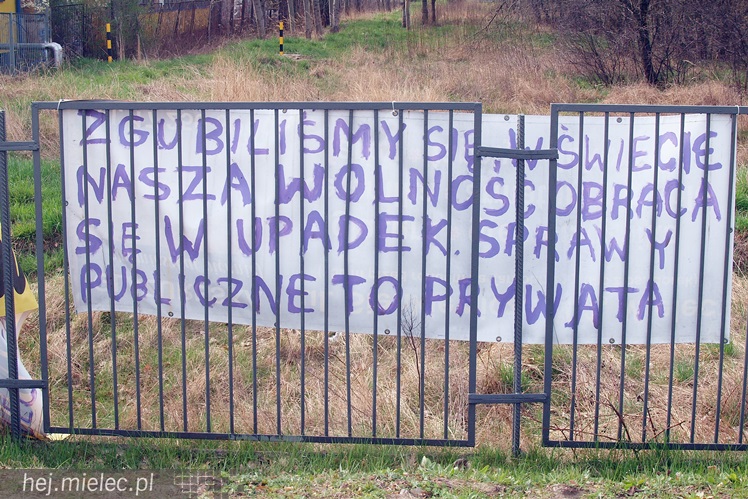 ZGUBILIŚMY SIĘ W ŚWIECIE
NASZA WOLNOŚĆ OBRACA
SIĘ W UPADEK. SPRAWY
PUBLICZNE TO PRYWATA
hej.mielec.pl